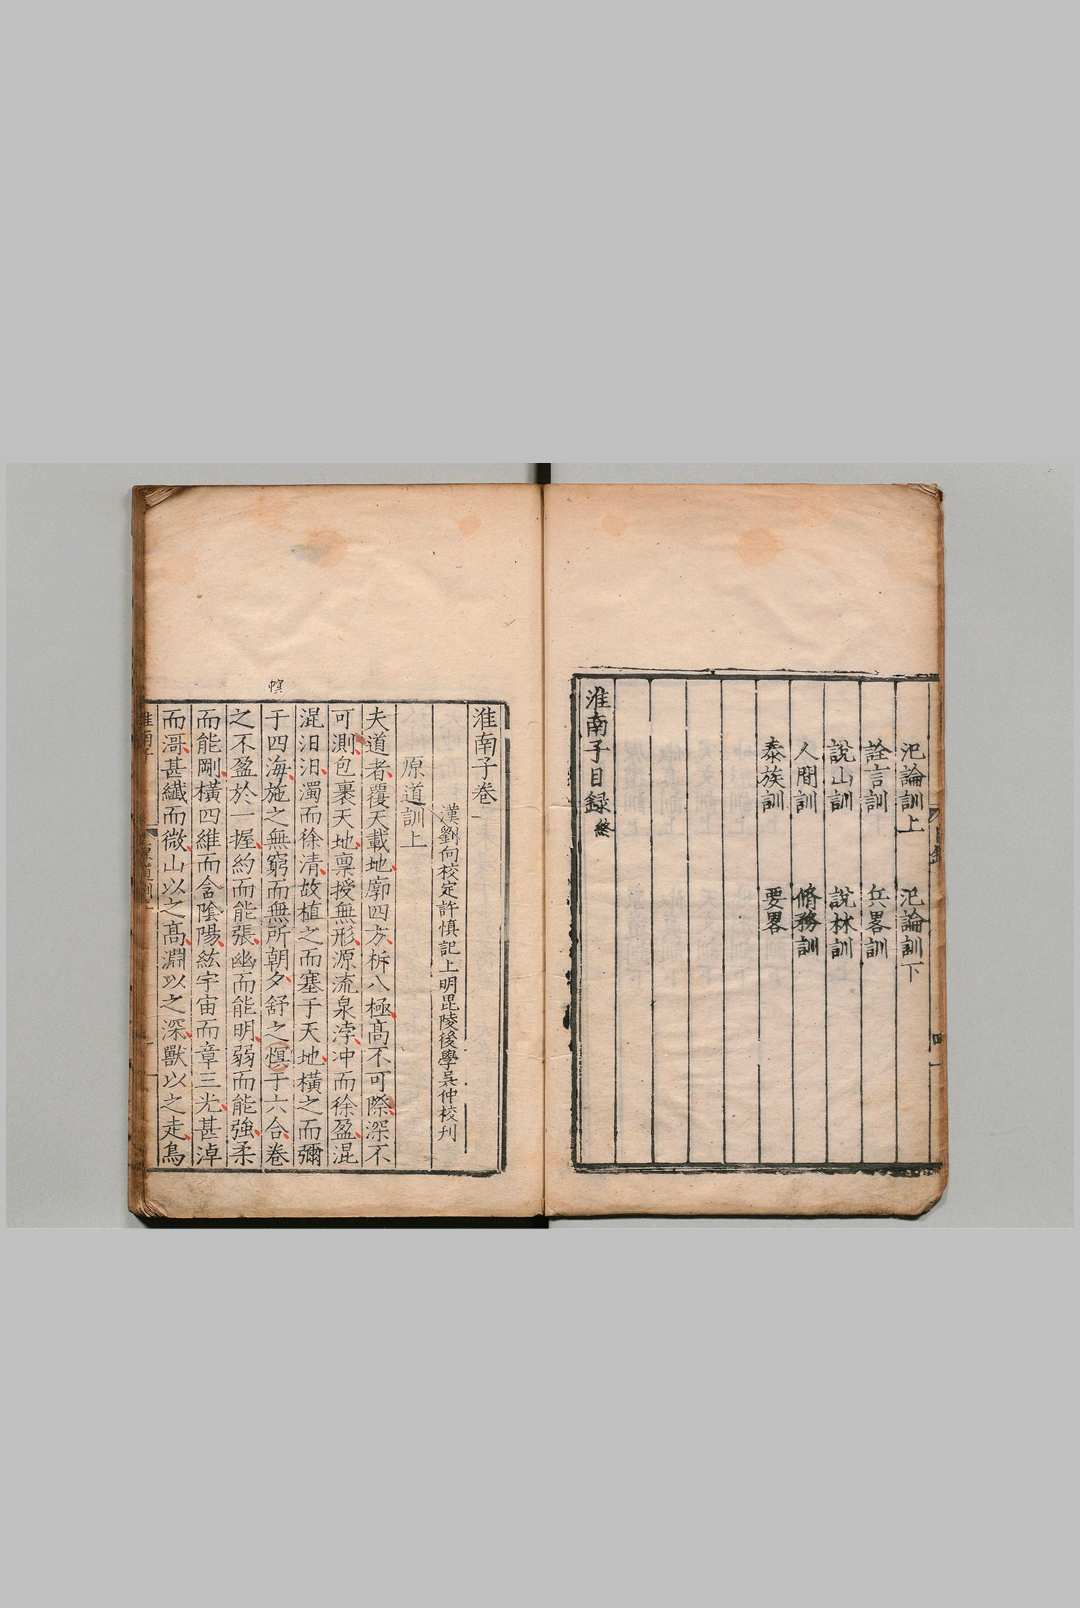 汜論訓上 汜論訓下
詮言訓 兵畧訓
說山訓 說林訓
人間訓 脩務訓
泰族訓 要畧
淮南子目録 終
淮南子卷一
漢劉向校定許慎記上明毘陵後學吳仲校刋
原道訓上
夫道者覆天載地廓四方柝八極高不可際深不
可測包裹天地稟授無形源流泉浡冲而徐盈混
混汩汩濁而徐清故植之而塞于天地橫之而彌
于四海施之無窮而無所朝夕舒之慏于六合卷
之不盈於一握約而能張幽而能明弱而能強柔
而能剛橫四維而含陰陽紘宇宙而章三光甚淖
而滒甚纖而微山以之高淵以之深獸以之走鳥
淮南子